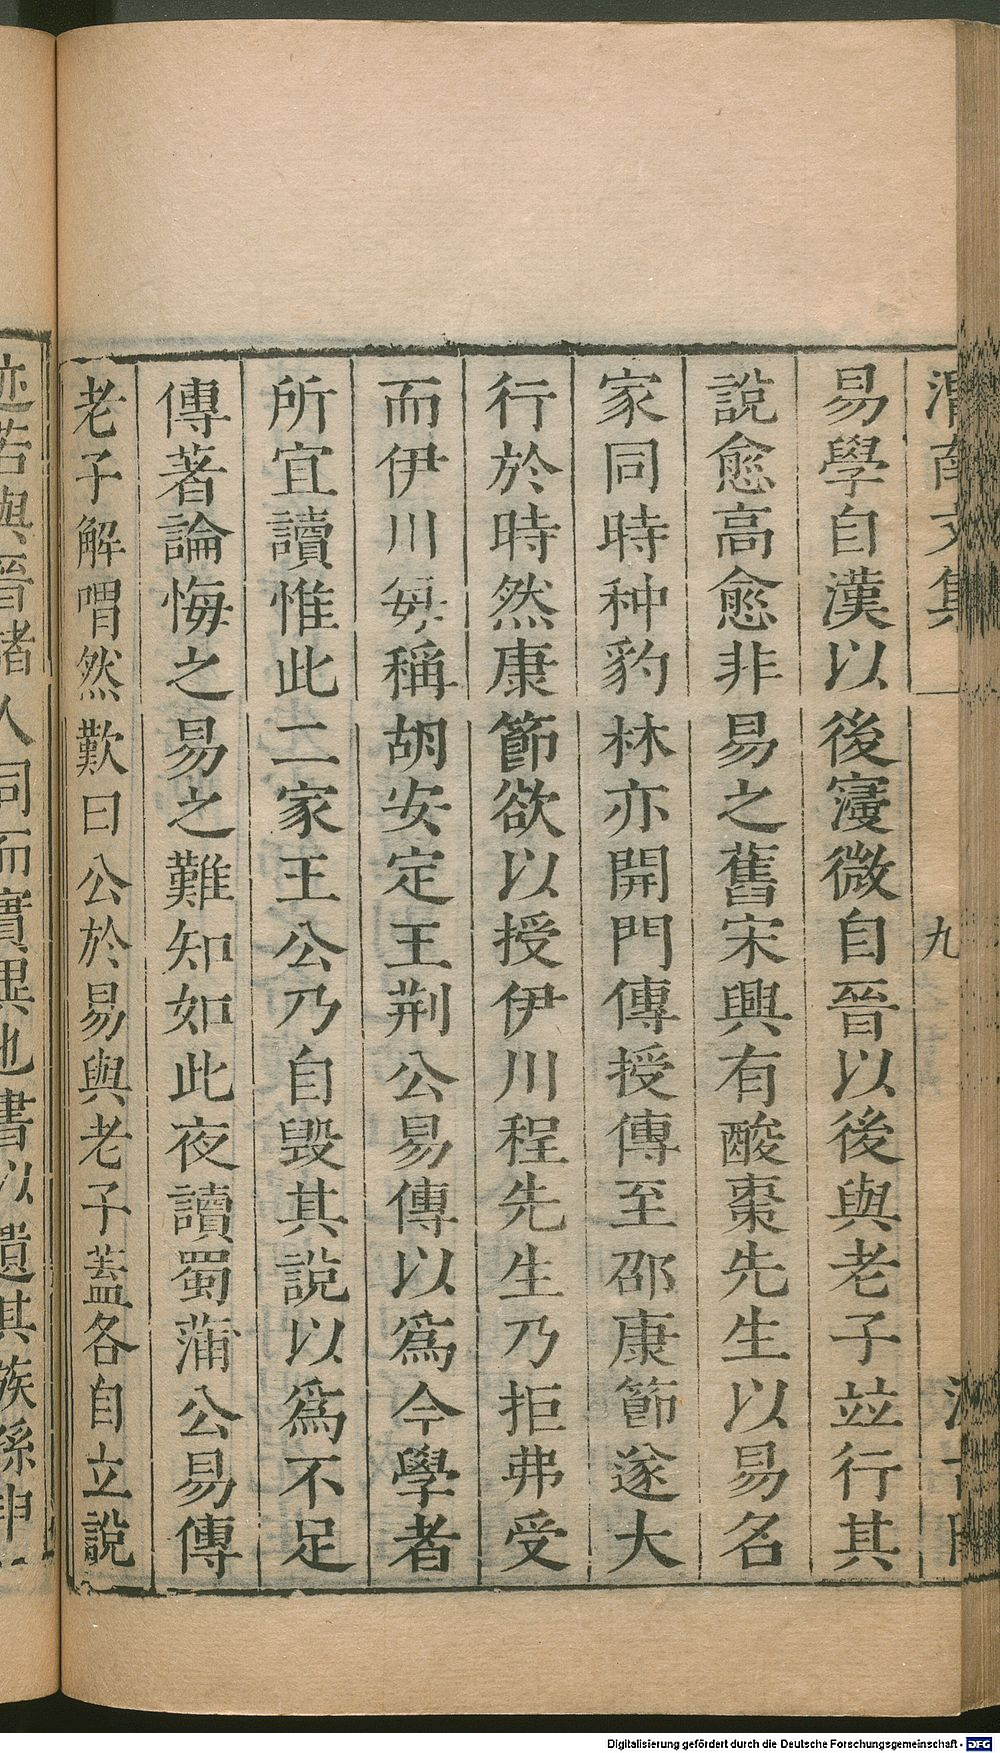 渭南文集
九
易學自漢以後寖微自晉以後與老子並行其
說愈高愈非易之舊宋興有酸棗先生以易名
家同時种豹林亦開門傳授傳至邵康節遂大
行於時然康節欲以授伊川程先生乃拒弗受
而伊川每稱胡安定王荆公易傳以爲今學者
所宜讀惟此二家王公乃自毀其說以爲不足
傳著論悔之易之難知如此夜讀蜀蒲公易傳
老子解喟然歎曰公於易與老子蓋各自立說
迹若與晉諸人同而實異也書以遺其族孫申
Digitalisierung gefördert durch die Deutsche Forschungsgemeinschaft - DFG